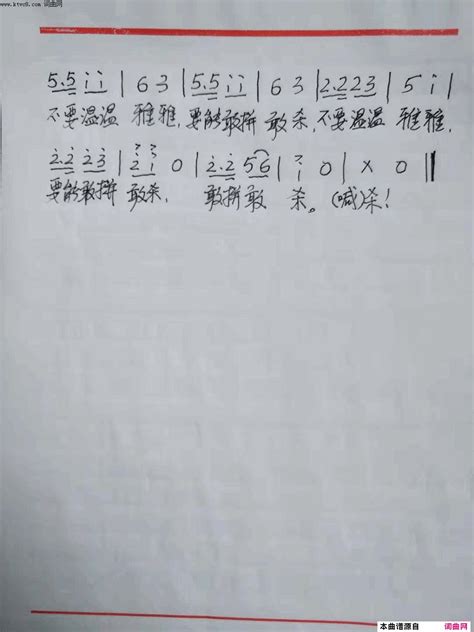 www.ktvc8.com 词曲网
5.5 i i | 6 3 | 5.5 i i | 6 3 | 2.2 2 3 | 5 i |
不要温温 雅雅,要能敢拼 敢杀,不要温温 雅雅,
2.2 2 3 | 2 i 0 | 2.2 5 6 | i 0 | x 0 ‖
要能敢拼 敢杀, 敢拼敢 杀。(喊)杀!
本曲谱源自 词曲网